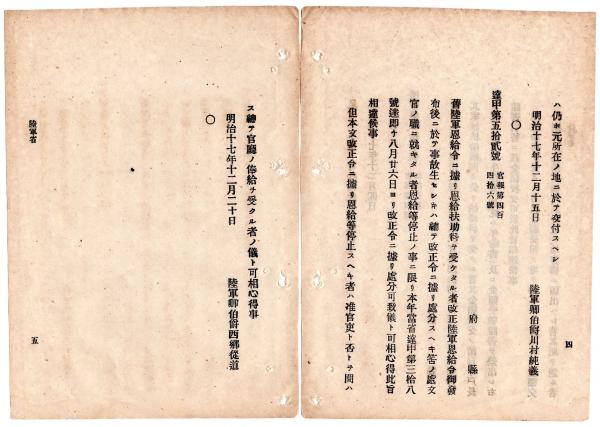 四
ハ仍ホ元所在ノ地ニ於テ交付スヘシ
明治十七年十二月十五日
陸軍卿伯爵川村純義
○
達甲第五拾貳號
官報第四百
四拾六號
府縣
舊陸軍恩給令ニ據リ恩給扶助料ヲ受ケタル者改正陸軍恩給令御發
布後ニ於テ事故生セシキハ總テ改正令ニ據リ處分スヘキ筈ノ處文
官ノ職ニ就キタル者恩給等停止ノ事ニ限リ本年當省達甲第三拾八
號達即チ八月廿六日ヨリ改正令ニ據リ處分可致儀ト可相心得此旨
相達候事
但本文改正令ニ據リ恩給等停止スヘキ者ハ准官吏ト否トヲ問ハ
ス總テ官廳ノ俸給ヲ受クル者ノ儀ト可相心得事
明治十七年十二月二十日
陸軍卿伯爵西鄉從道
○
陸軍省
五